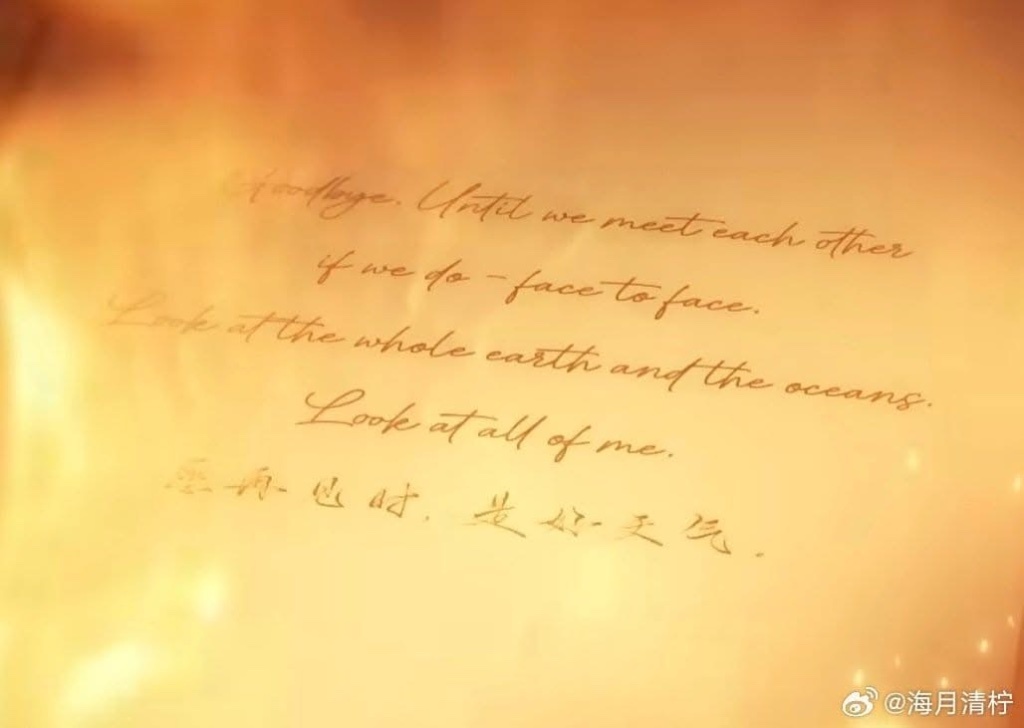 Goodbye. Until we meet each other
if we do - face to face.
Look at the whole earth and the oceans.
Look at all of me.
愿再见时，是好天气.
@海月清柠